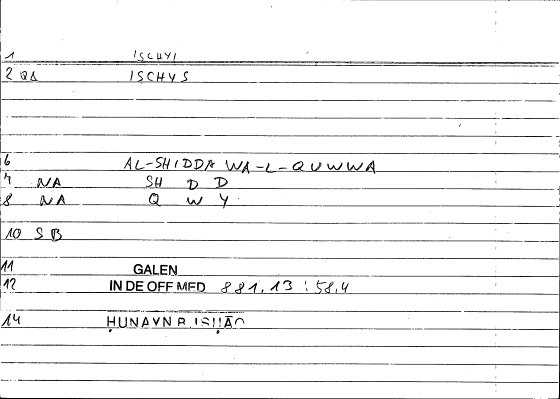 1 ISCHYI
2 QA ISCHYS
6 AL-SHIDDA WA-L-QUWWA
7 NA SH D D
8 NA Q W Y
10 S B
11 GALEN
12 IN DE OFF MED 881.13 : 58,4
14 ḤUNAYN B. ISḤĀQ